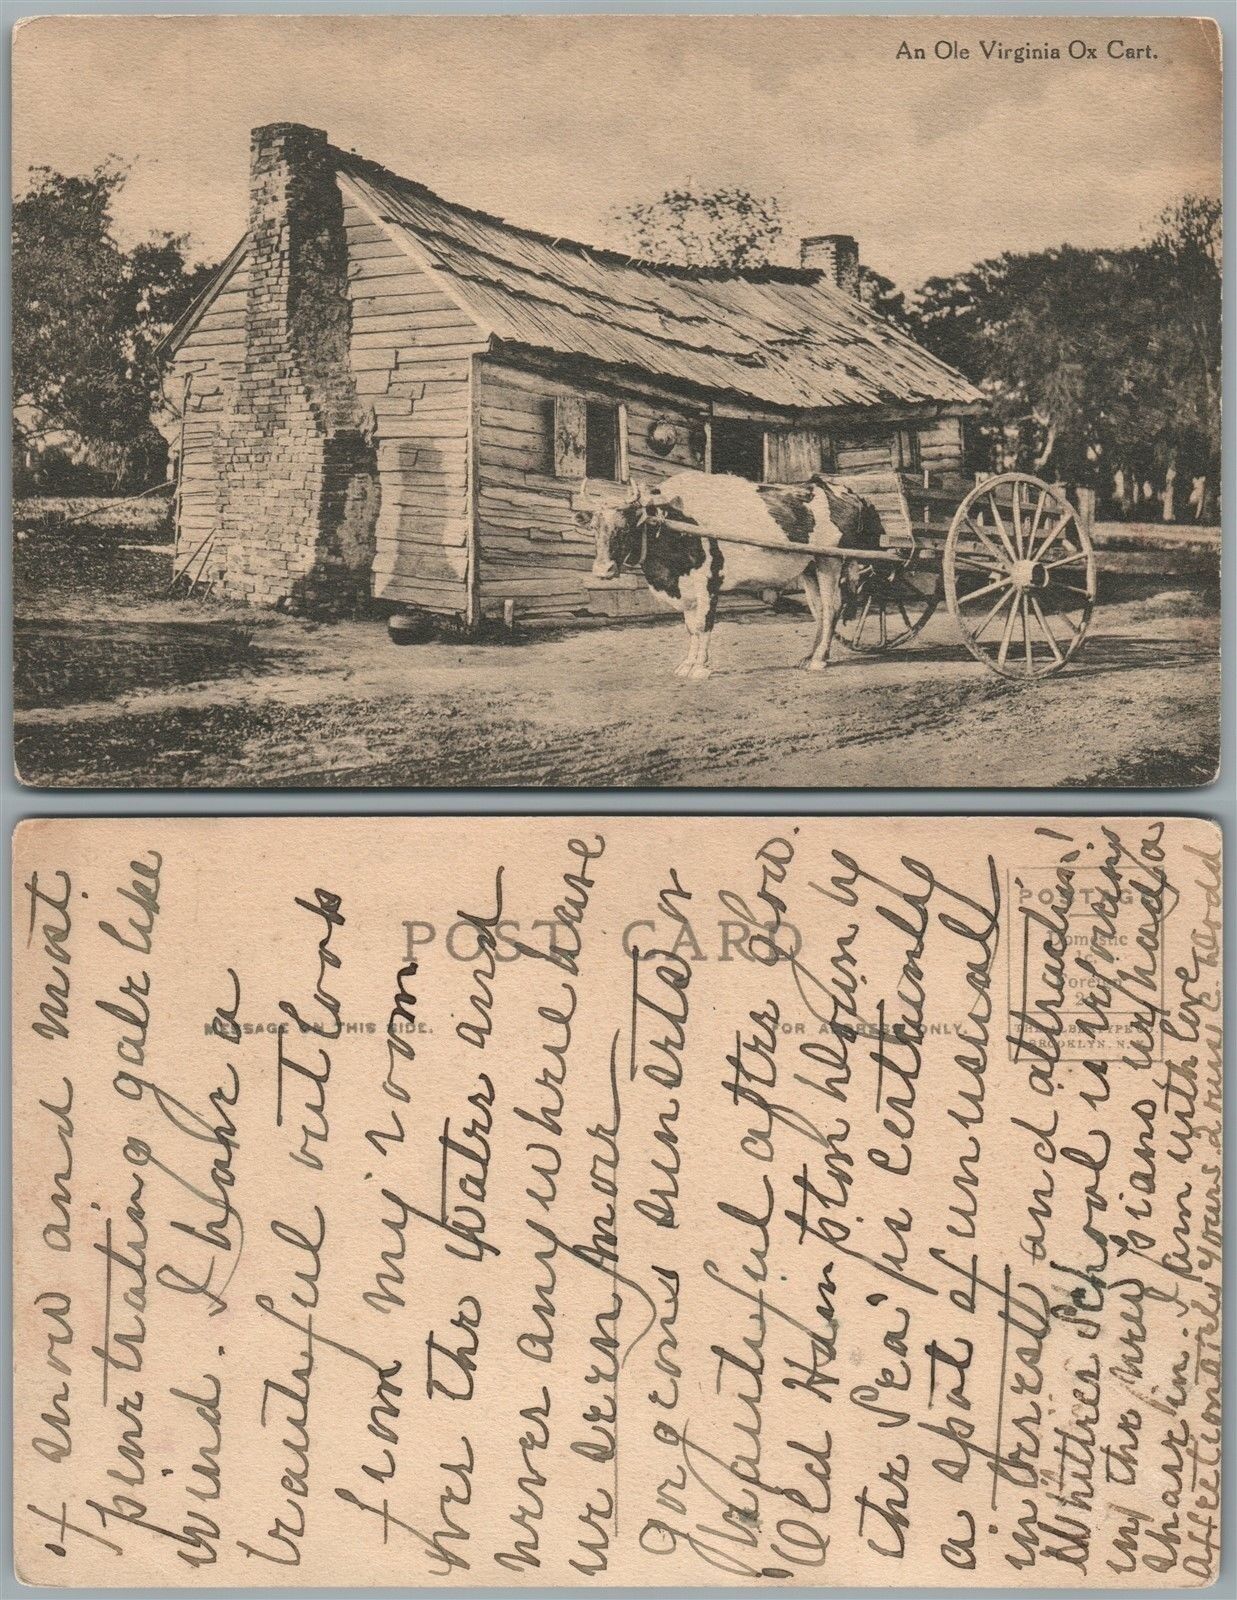 An Ole Virginia Ox Cart.
POST CARD
MESSAGE ON THIS SIDE.
FOR ADDRESS ONLY.
POSTAGE
Domestic
Foreign
THE ALBERTYPE CO.
BROOKLYN, N.Y.
of snow and most
penetrating gale like
wind. I have a
beautiful outlook
from my room
over the water and
never anywhere have
we seen more
gorgeous sunsets or
beautiful after glow.
"Old Hampton down by
the Sea" is certainly
a spot of unusual
interest and attraction!
Whittier School is rejoicing
in the new piano we had a
share in. I am with love
affectionately yours Louise Dodd